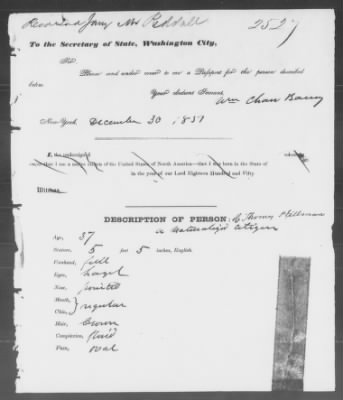 2527
To the Secretary of State, Washington City,
Sir
Please and under cover to me a Passport for the person described
below.
Your obedient Servant,
Wm Chan
New-York, December 30 1851
I, the undersigned
that I am a native citizen of the United States of North America—that I was born in the State of
in the year of our Lord Eighteen Hundred and Fifty
Witness
DESCRIPTION OF PERSON: Thomas
a naturalized citizen
Age, 37
Stature, 5 feet 5 inches, English.
Forehead, full
Eyes, hazel
Nose, pointed
Mouth,
Chin, } regular
Hair, brown
Complexion, florid
Face, oval